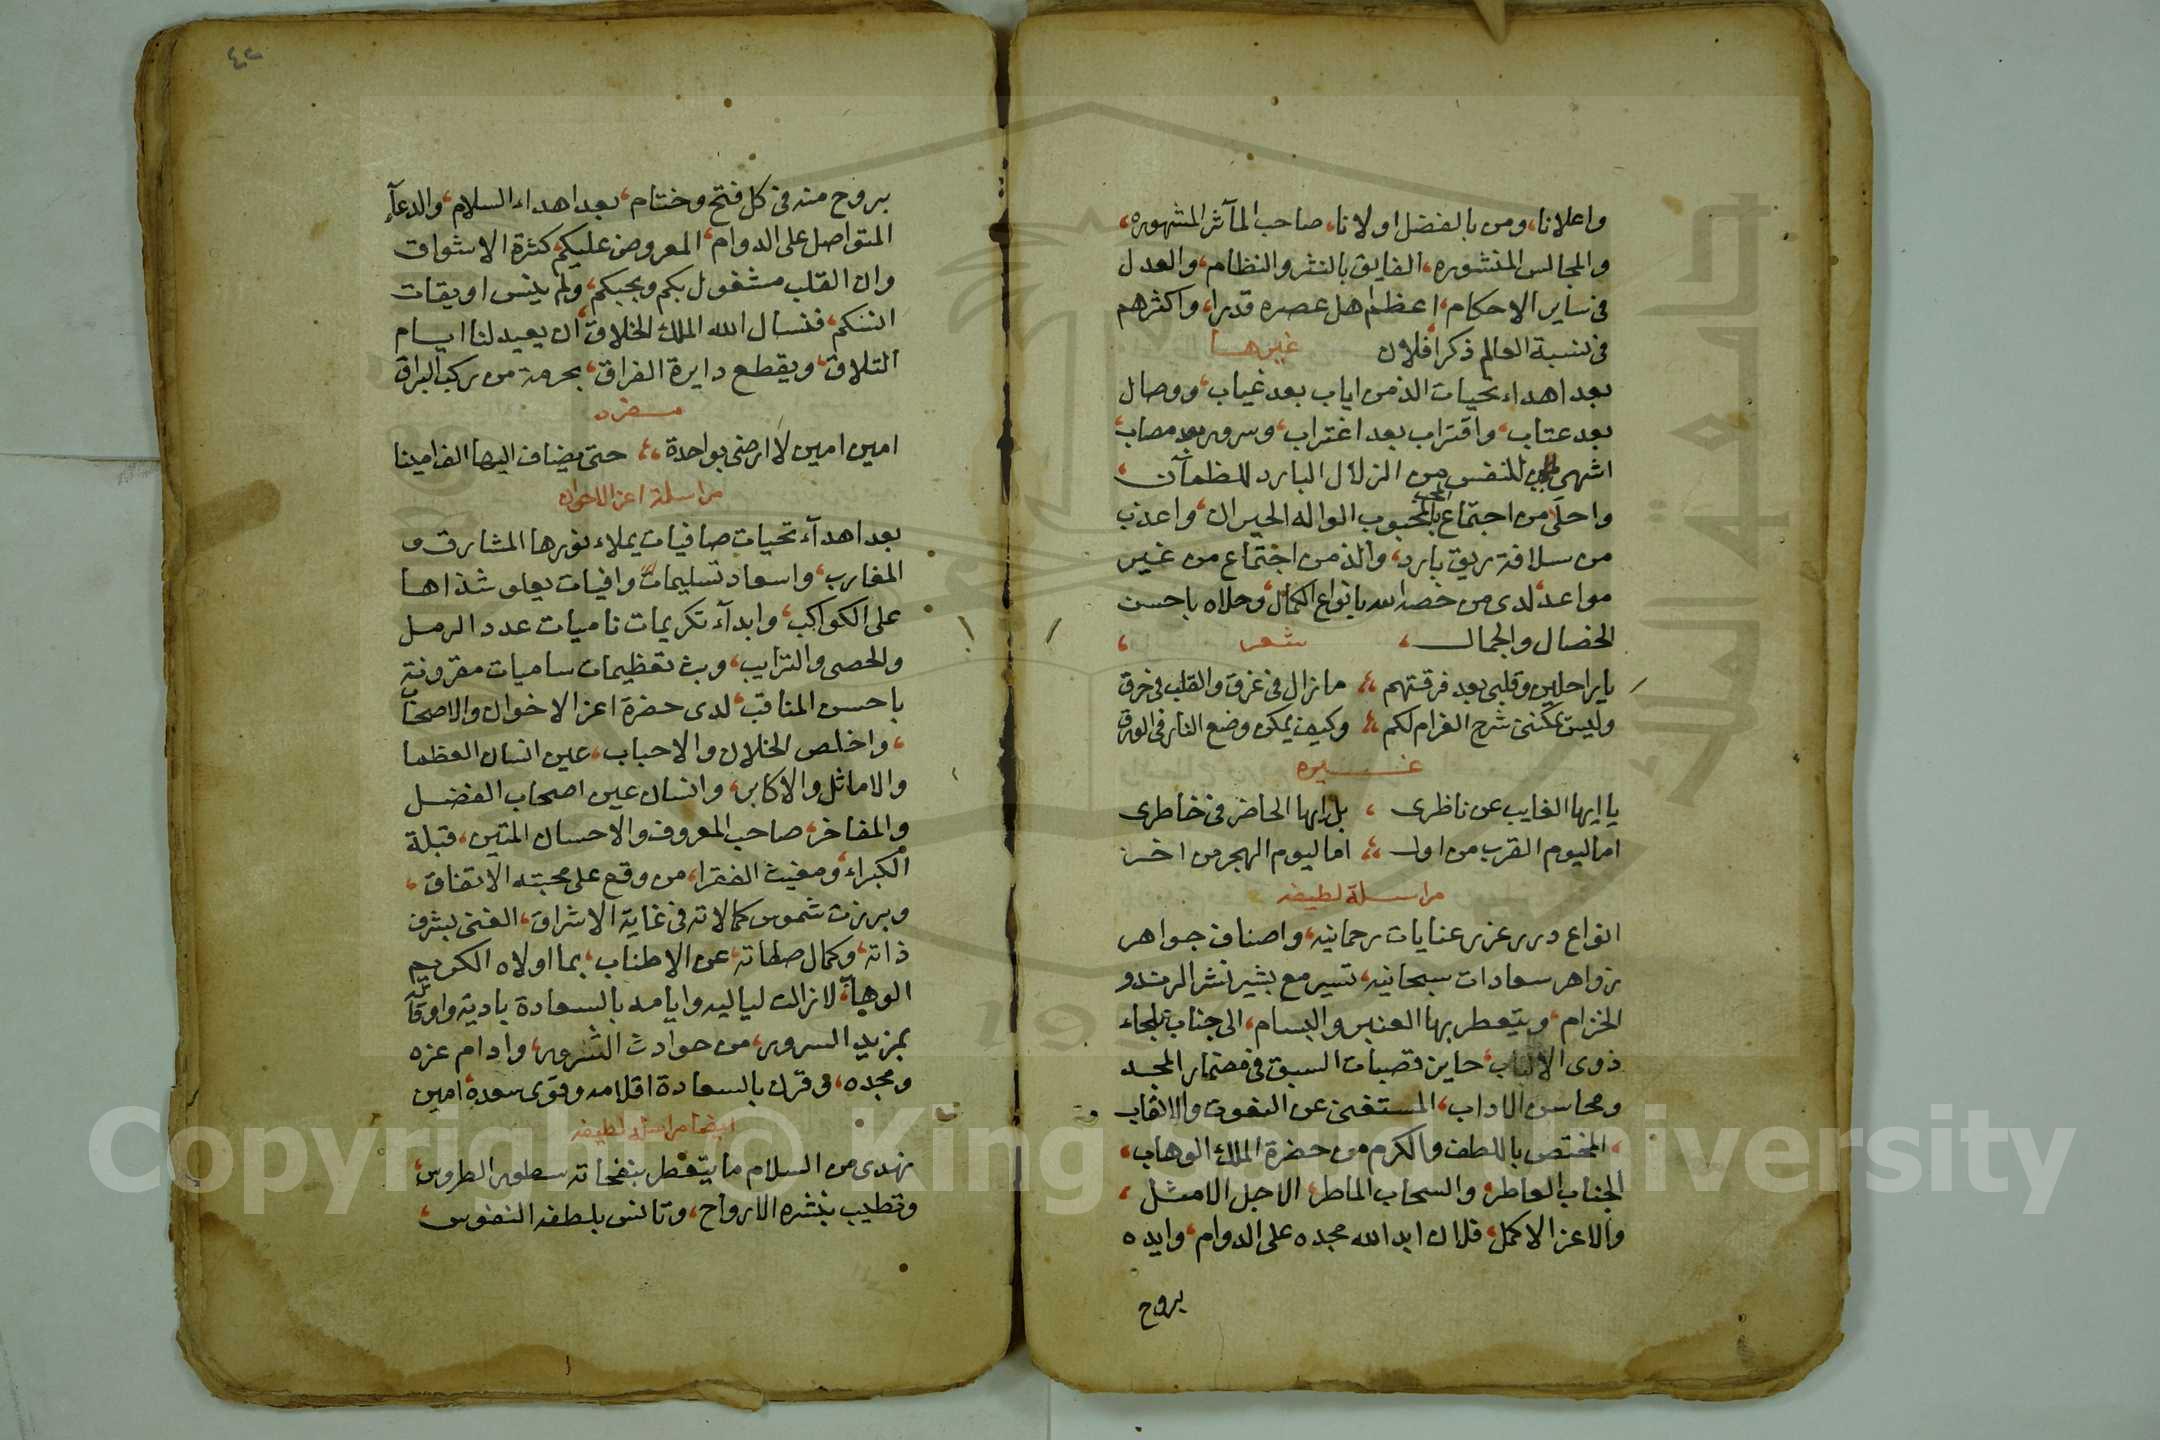 واعلانا، ومن بالفضل اولانا، صاحب المآثر المشهوره،
والمجالس المنشوره، الفايق بالنثر والنظام، والعدل
فى ساير الاحكام، اعظم اهل عصره قدرا، واكثرهم
فى نسبة العالم ذكرا فلان غيرها
بعد اهداء تحيات الذ من اياب بعد غياب، ووصال
بعد عتاب، واقتراب بعد اغتراب، وسرور بعد مصاب،
اشهى للنفس من الزلال البارد للظمآن،
واحلى من اجتماع المحب بالمحبوب الواله الحيران، واعذب
من سلافة ريق بارد، والذ من اجتماع من غير
مواعد، لدى من خصه الله بانواع الكمال، وحلاه باحسن
الخصال والجمال، شعر،
يا راحلين وقلبى بعد فرقتهم ،، ما زال فى غرق والقلب فى حرق
وليس يمكننى شرح الغرام لكم ،، وكيف يمكن وضع النار فى الورق
غيره
يا ايها الغايب عن ناظرى ، بل ايها الحاضر فى خاطرى
اما ليوم القرب من اول ،، اما ليوم الهجر من اخر
مراسلة لطيفه
انواع درر غرر عنايات رحمانيه، واصناف جواهر
زواهر سعادات سبحانيه، تسير مع بشير نشر الرند و
الخزام، ويتعطر بها العنبر والبسام، الى جناب ملجاء
ذوى الالباب، حايز قصبات السبق فى مضمار المجد
ومحاسن الاداب، المستغنى عن النعوت والالقاب
، المختص باللطف والكرم من حضرة الملك الوهاب،
الجناب العاطر، والسحاب الماطر، الاجل الامثل،
والاعز الاكمل، فلان ابد الله مجده على الدوام، وايده
بروح
٤٢
بروح منه فى كل فتح وختام، بعد اهداء السلام، والدعآء
المتواصل على الدوام، المعروض عليكم كثرة الاشواق
وان القلب مشغول بكم وبحبكم، ولم ينس اويقات
انسكم، فنسال الله الملك الخلاق، ان يعيد لنا ايام
التلاق، ويقطع دايرة الفراق، بحرمة من ركب البراق
مفرد
امين امين لا ارضى بواحدة ،، حتى يضاف اليها الف امينا
مراسلة اعز الاخوان
بعد اهدآء تحيات صافيات يملاء نورها المشارق و
المغارب، واسعاد تسليمات وافيات يعلو شذاها
على الكواكب، وابدآء تكريمات ناميات عدد الرمل
والحصى والترايب، وبث تعظيمات ساميات مقرونة
باحسن المناقب، لدى حضرة اعز الاخوان والاصحاب
، واخلص الخلان والاحباب، عين انسان العظما
والاماثل والاكابر، وانسان عين اصحاب الفضل
والمفاخر، صاحب المعروف والاحسان المتين، قبلة
الكبراء، ومغيث الفقرا، من وقع على محبته الاتفاق،
وبرزت شموس كمالاته فى غاية الاشراق، الغنى بشرف
ذاته، وكمال صفاته، عن الاطناب، بما اولاه الكريم
الوهاب، لازالت لياليه وايامه بالسعادة بادية واوقاته
بمزيد السرور، من حوادث الشرور، وادام عزه
ومجده، وقرن بالسعادة اقلامه وقوى سعده، امين
ايضا مراسله لطيفه
نهدى من السلام ما يتعطر بنفحاته سطور الطروس،
وتطيب بنشره الارواح، وتانس بلطفه النفوس،
Copyright © King University